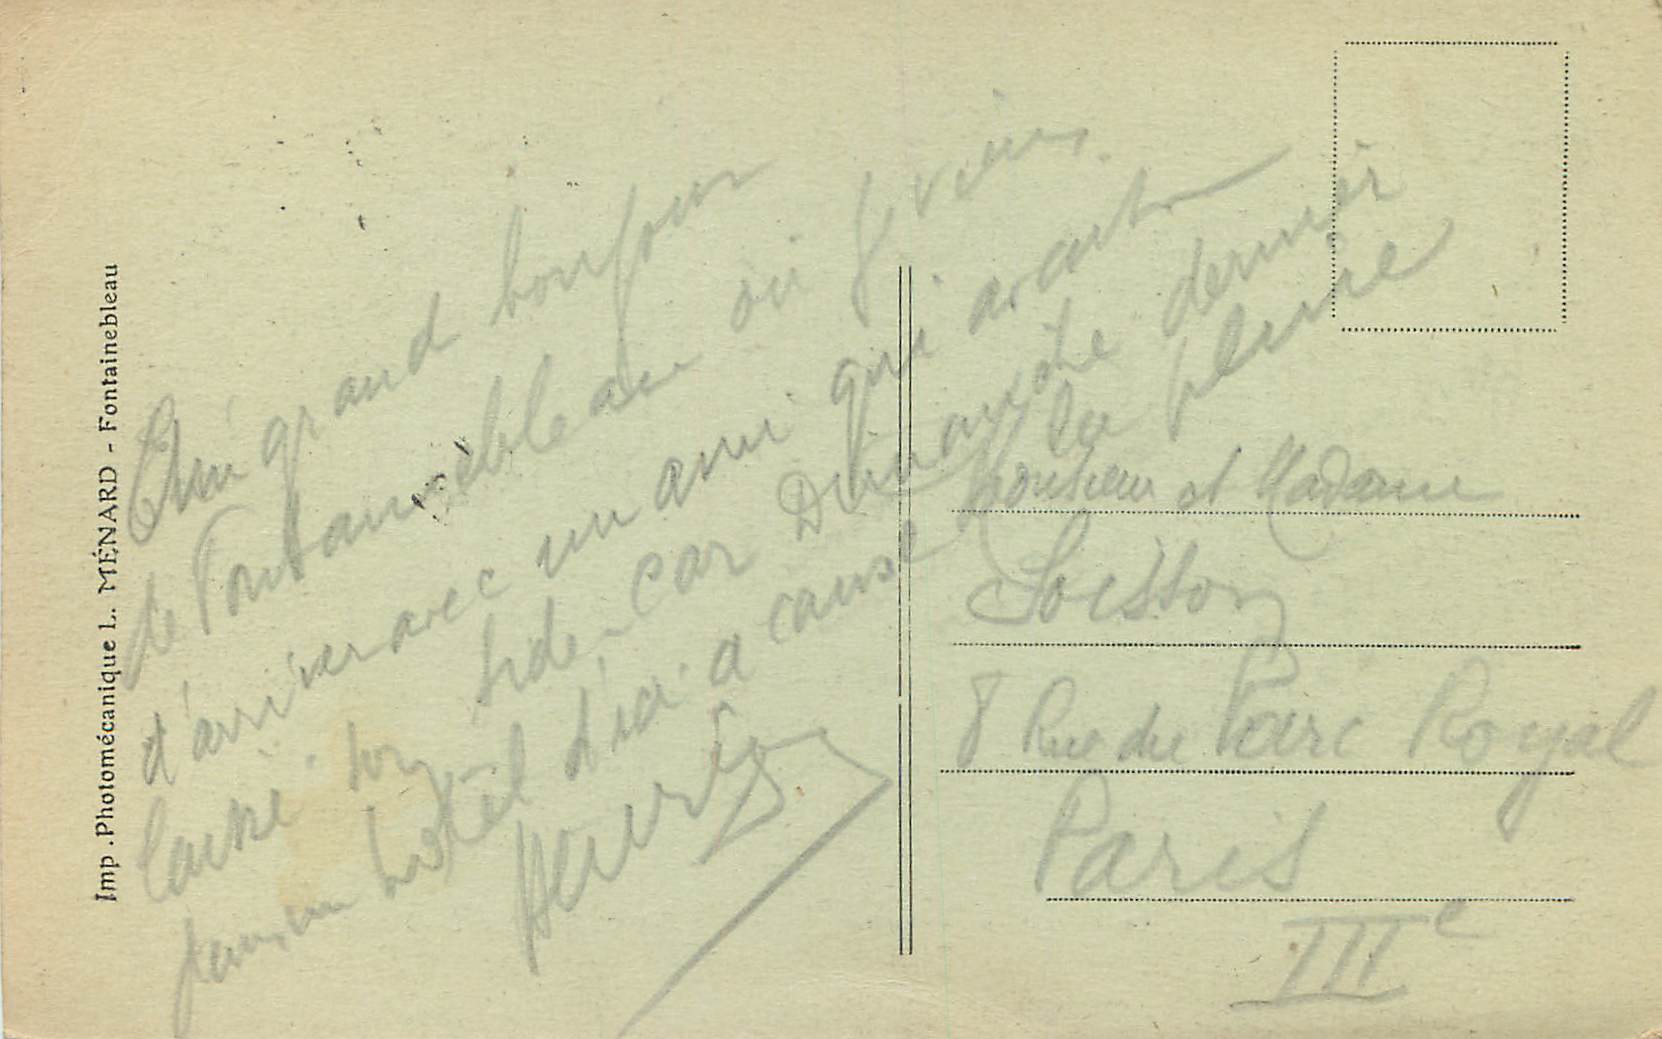 Imp. Photomécanique L. MÉNARD - Fontainebleau
Un grand bonjour
de Fontainebleau où je viens
d'arriver avec un ami qui avait
laissé son side-car Dimanche dernier
dans un hotel d'ici a cause de la pluie
Henri
Monsieur et Madame
Soisson
8 Rue du Parc Royal
Paris
IIIe